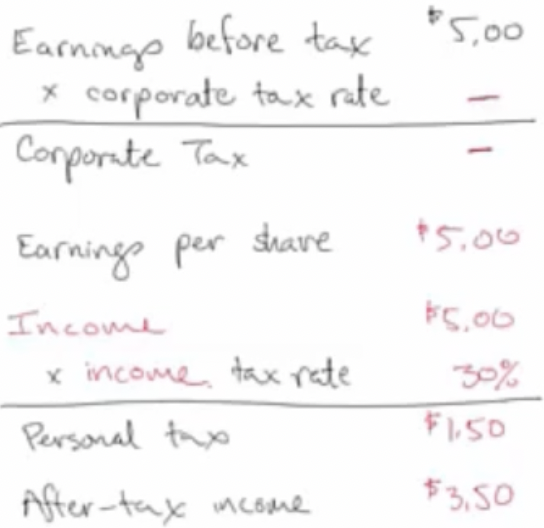 Earnings before tax $5.00
x corporate tax rate —
Corporate Tax —
Earnings per share $5.00
Income $5.00
x income tax rate 30%
Personal tax $1.50
After-tax income $3.50